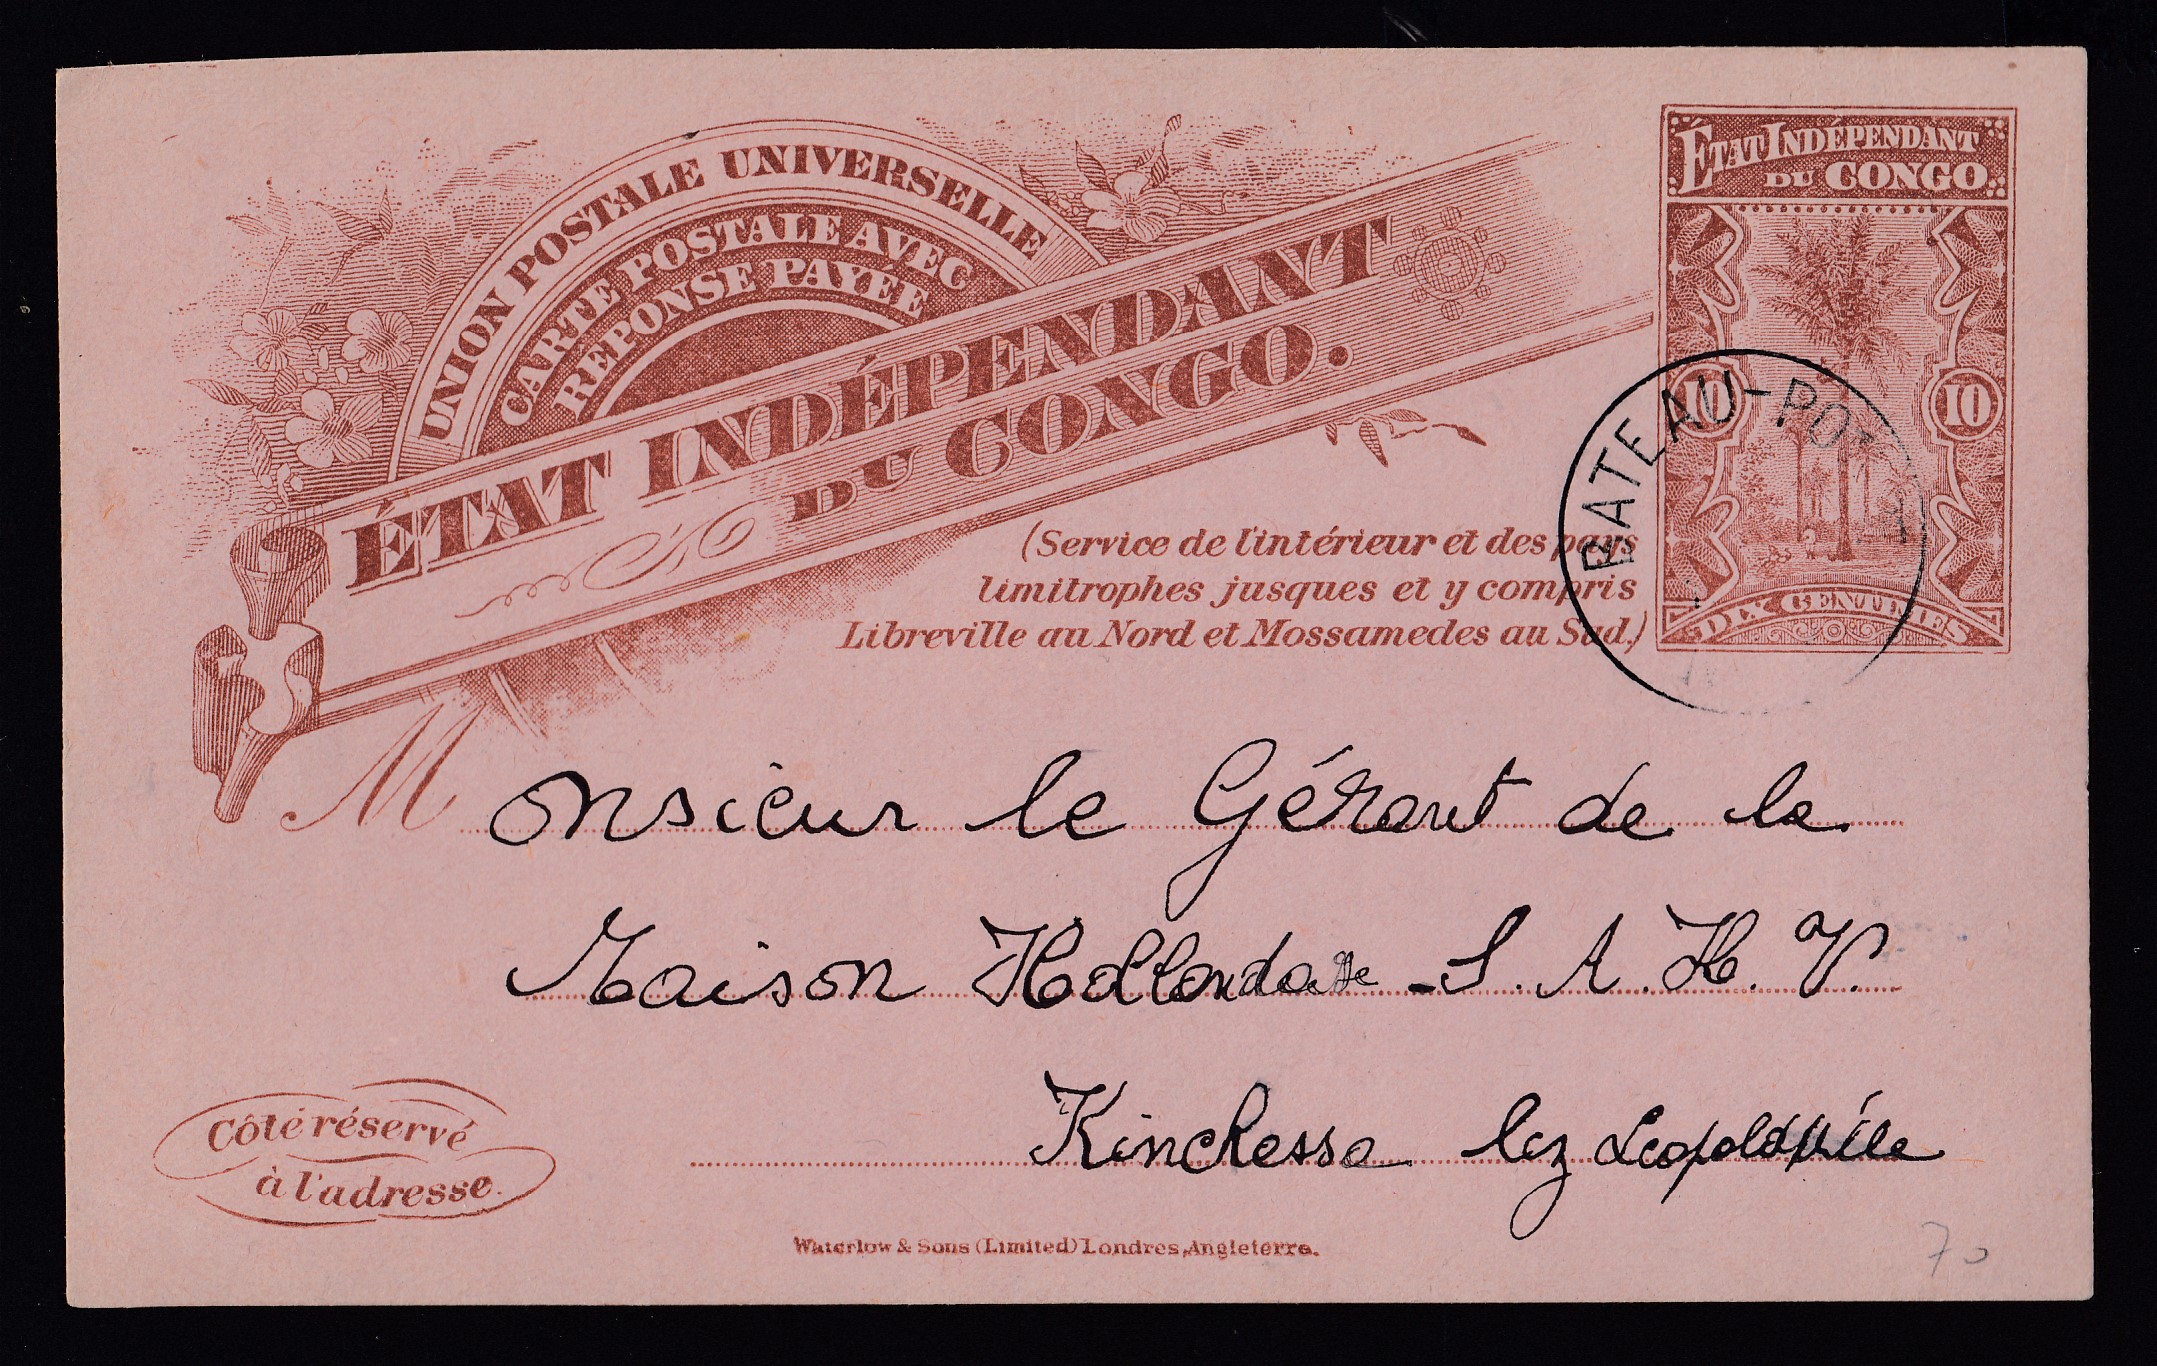 UNION POSTALE UNIVERSELLE
CARTE POSTALE AVEC
RÉPONSE PAYÉE
ÉTAT INDÉPENDANT
DU CONGO.
ÉTAT INDÉPENDANT
DU CONGO
10 10
DIX CENTIMES
BATEAU-POS
(Service de l'intérieur et des pays
limitrophes jusques et y compris
Libreville au Nord et Mossamedes au Sud.)
Monsieur le Gérant de la
Maison Hollandaise - S. A. H. V.
Kinchassa lez Leopoldville
Côté réservé
à l'adresse.
Waterlow & Sons (Limited) Londres, Angleterre.
70